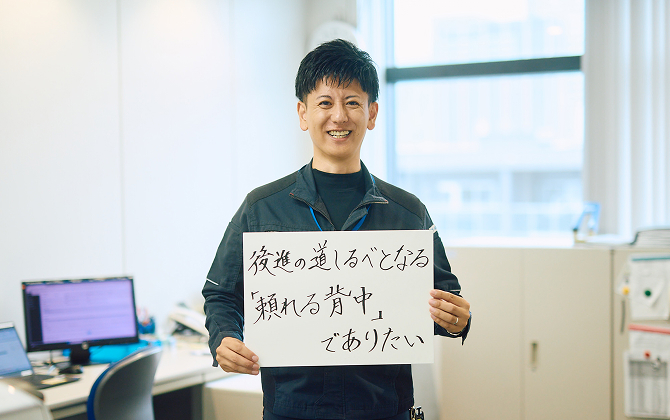 後進の道しるべとなる
「頼れる背中」
でありたい